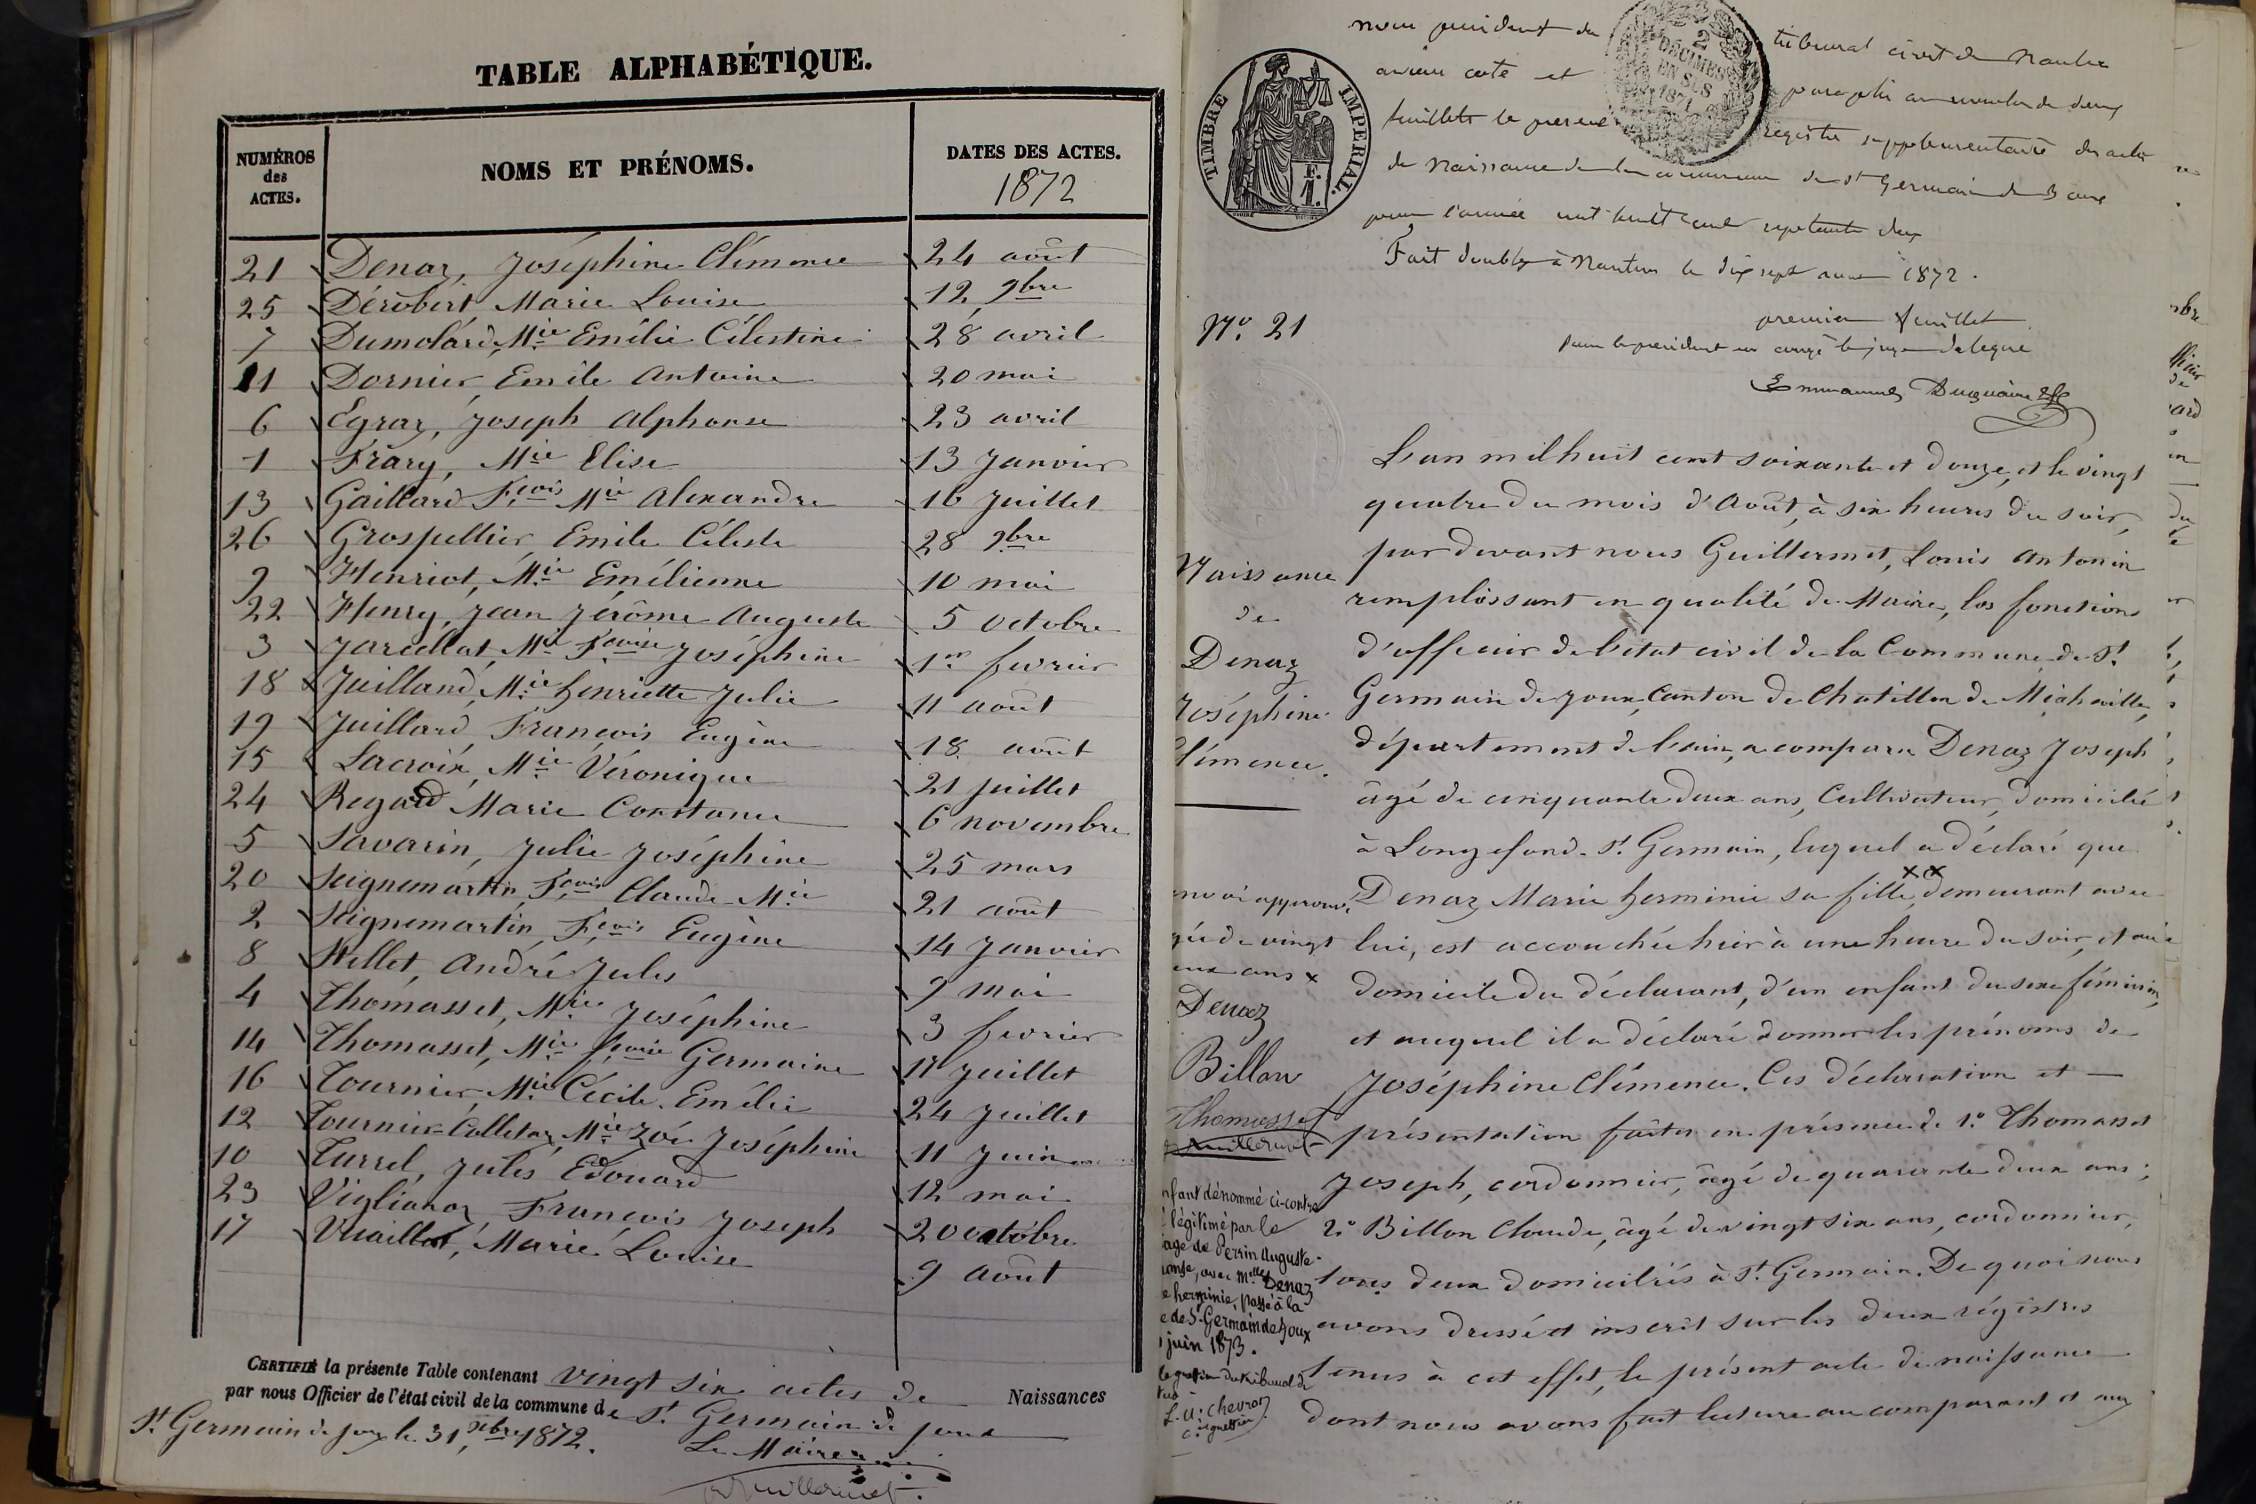 TABLE ALPHABÉTIQUE.
NUMÉROS
des
ACTES.
NOMS ET PRÉNOMS.
DATES DES ACTES.
1872
21 Denaz, Joséphine Clémence 24 août
25 Dérobert, Marie Louise 12 9bre
7 Dumolard, Mie Emélie Célestine 28 avril
11 Dornier, Emile Antoine 20 mai
6 Egraz, Joseph Alphonse 23 avril
1 Frary, Mie Elise 13 Janvier
13 Gaillard Fçois Mie Alexandre 16 Juillet
26 Grospellier Emile Céleste 28 9bre
9 Henriot, Mie Emélienne 10 mai
22 Henry, Jean Jérôme Auguste 5 octobre
3 Jarellat, Mie Fçoise Joséphine 1er fevrier
18 Juilland, Mie henriette Julie 11 août
19 Juillard François Eugène 18 août
15 Lacroix, Mie Véronique 21 Juillet
24 Regard Marie Constance 6 novembre
5 Savarin, Julie Joséphine 25 mars
20 Seignemartin, Fçois Claude Mie 21 août
2 Seignemartin, Fçois Eugène 14 Janvier
8 Stellet, André Jules 9 mai
4 Thomasset, Mie Joséphine 3 fevrier
14 Thomasset, Mie Fçoise Germaine 17 Juillet
16 Tournier, Mie Cécile Emélie 24 Juillet
12 Tournier-Colletaz, Mie Zoé Joséphine 11 Juin
10 Turrel, Jules Edouard 12 mai
23 Viglianoz François Joseph 20 octobre
17 Vuaillat, Marie Louise 9 août
CERTIFIÉ la présente Table contenant vingt six actes de Naissances
par nous Officier de l'état civil de la commune de St Germain de Joux
St Germain de Joux le 31 Xbre 1872.
Le Maire
Guillermet
TIMBRE IMPERIAL.
F.
1.
2
DÉCIMES
EN SUS
1871
nous président du tribunal civil de Nantua
avons coté et paraphé au nombre de deux
feuillets le présent registre supplémentaire des actes
de Naissance de la commune de St Germain de Joux
pour l'année mil huit cent septante deux
Fait double à Nantua le dix sept août 1872.
premier feuillet
pour le président en congé le juge délégué
No. 21
Naissance
de
Denaz
Joséphine
Clémence.
L'an mil huit cent soixante et douze, et le vingt
quatre du mois d'Août, à six heures du soir,
par devant nous Guillermet, Louis Antonin
remplissant en qualité de Maire, les fonctions
d'officier de l'état civil de la Commune de St
Germain de Joux, Canton de Chatillon de Michaille,
département de l'ain, a comparu Denaz Joseph
âgé de cinquante deux ans, Cultivateur, domicilié
à Longefand-St Germain, lequel a déclaré que
Denaz Marie herminie sa fille, xx demeurant avec
lui, est accouchée hier à une heure du soir, et au
domicile du déclarant, d'un enfant du sexe féminin,
et auquel il a déclaré donner les prénoms de
Joséphine Clémence. Ces déclaration et —
présentation faites en présence de 1o Thomasset
Joseph, cordonnier, âgé de quarante deux ans;
2o Billon Claude, âgé de vingt six ans, cordonnier,
tous deux domiciliés à St Germain. De quoi nous
avons dressé et inscrit sur les deux régistres
tenus à cet effet, le présent acte de naissance
dont nous avons fait lecture au comparant et aux
nvoi approuvé
gée de vingt
eux ans x
Denaz
Billon
Thomasset
Guillermet
nfant dénommé ci-contre
légitimé par le
age de Perrin Auguste-
onse, avec Melle Denaz
e herminie, passé à la
e de St-Germain de Joux
juin 1873.
le greffier du tribunal de
L. A. Chevron
c. greffier